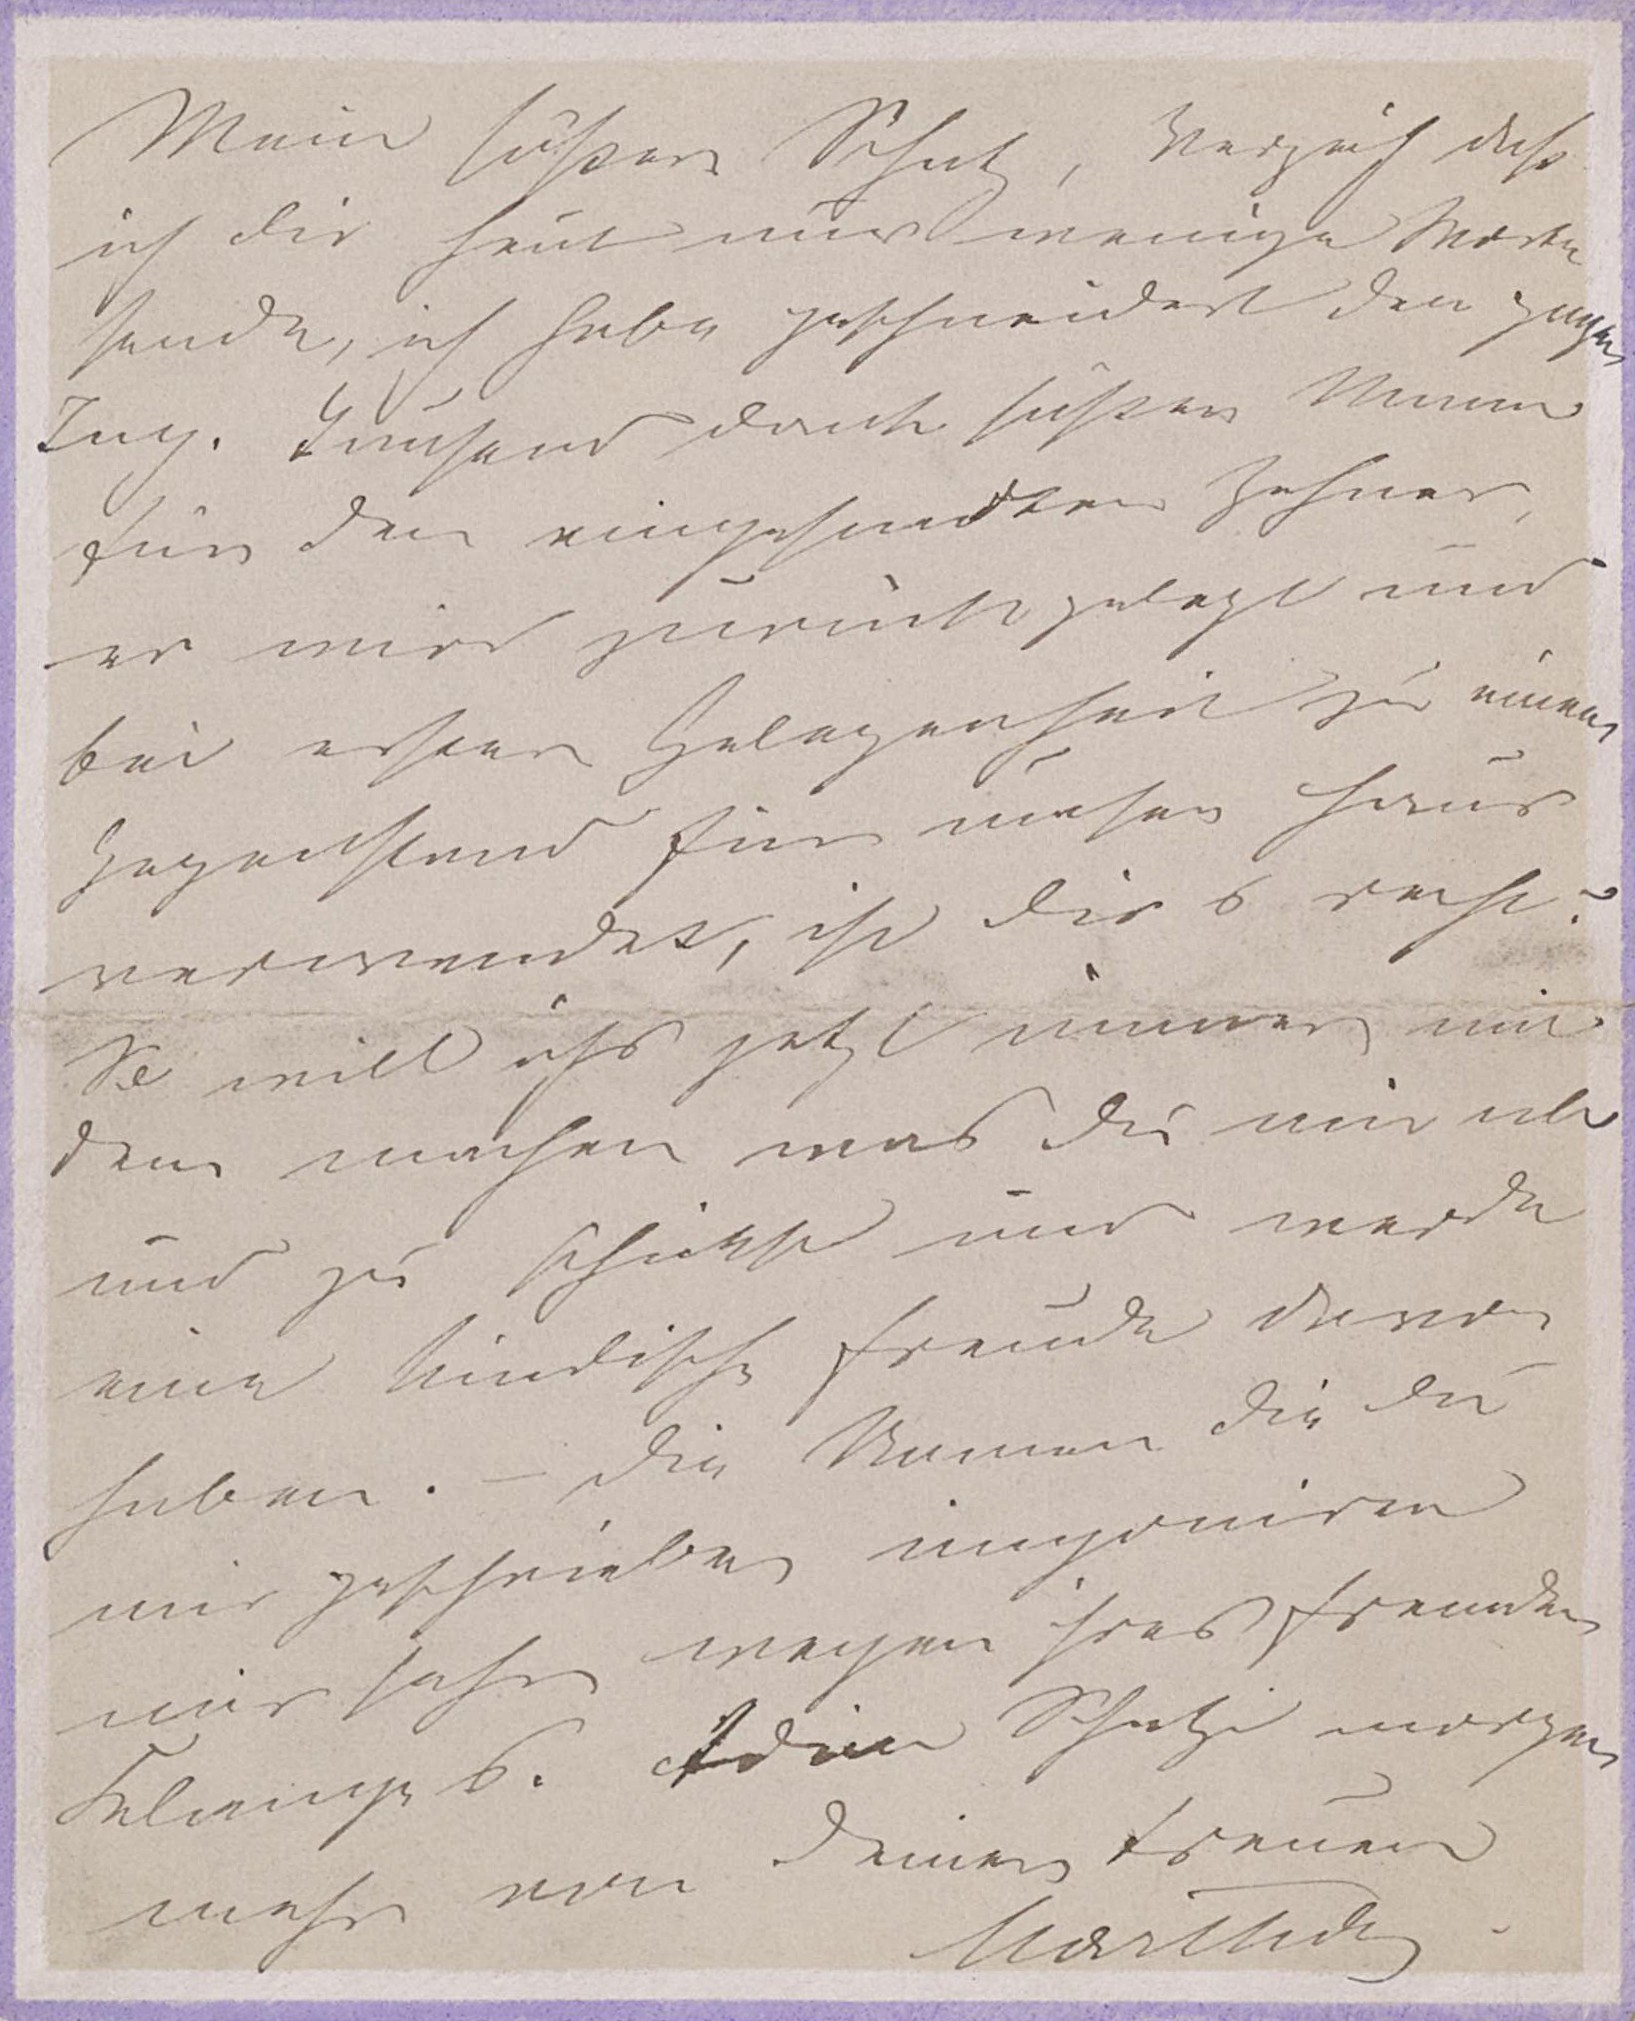 Mein süßer Schatz, Verzeih daß
ich dir heut nur wenige Worte
sende, ich habe geschneidert den ganzen
Tag. Tausend dank süßer Mann
für den eingesandten Zehner,
er wird zurückgelegt und
bei erster Gelegenheit zu einem
Gegenstand für unser Haus
verwendet, ist dir's recht?
So will ichs jetzt immer mit
dem machen was du mir ab
und zu schickst und werde
eine kindische Freude daran
haben. – Die Namen die du
mir geschrieben imponiren
mir sehr wegen ihres fremden
Klanges. Adieu Schatzi morgen
mehr von deiner treuen